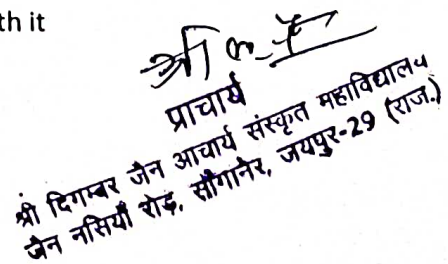 th it
प्राचार्य
श्री दिगम्बर जैन आचार्य संस्कृत महाविद्यालय
जैन नसियाँ रोड़, साँगानेर, जयपुर-29 (राज.)